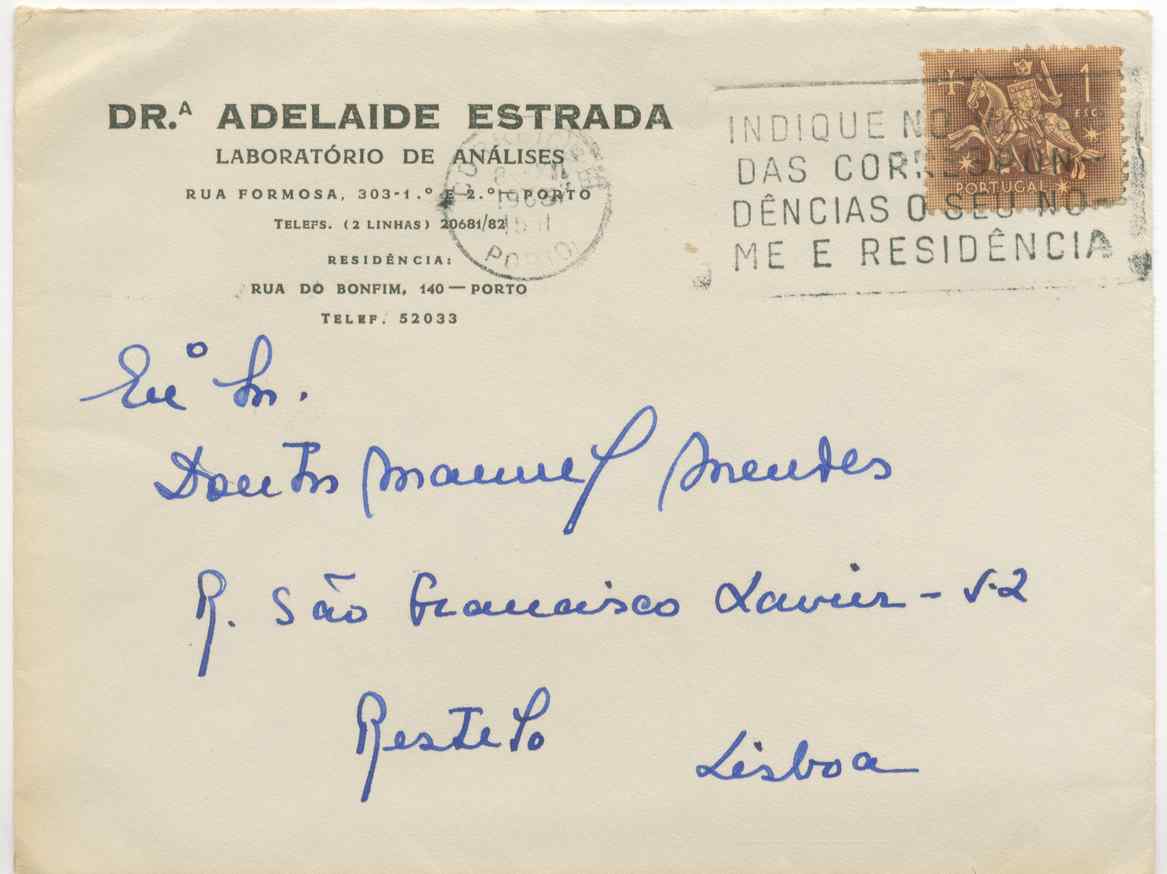 DR.ª ADELAIDE ESTRADA
LABORATÓRIO DE ANÁLISES
RUA FORMOSA, 303-1.º E 2.º — PORTO
TELEFS. (2 LINHAS) 20681/82
RESIDÊNCIA:
RUA DO BONFIM, 140 — PORTO
TELEF. 52033
PORTO
INDIQUE NO
DAS CORRESPON-
DÊNCIAS O SEU NO-
ME E RESIDÊNCIA
1
ESC.
PORTUGAL
Exº Sr.
Doutor Manuel Mendes
R. São Francisco Xavier -
Restelo
Lisboa